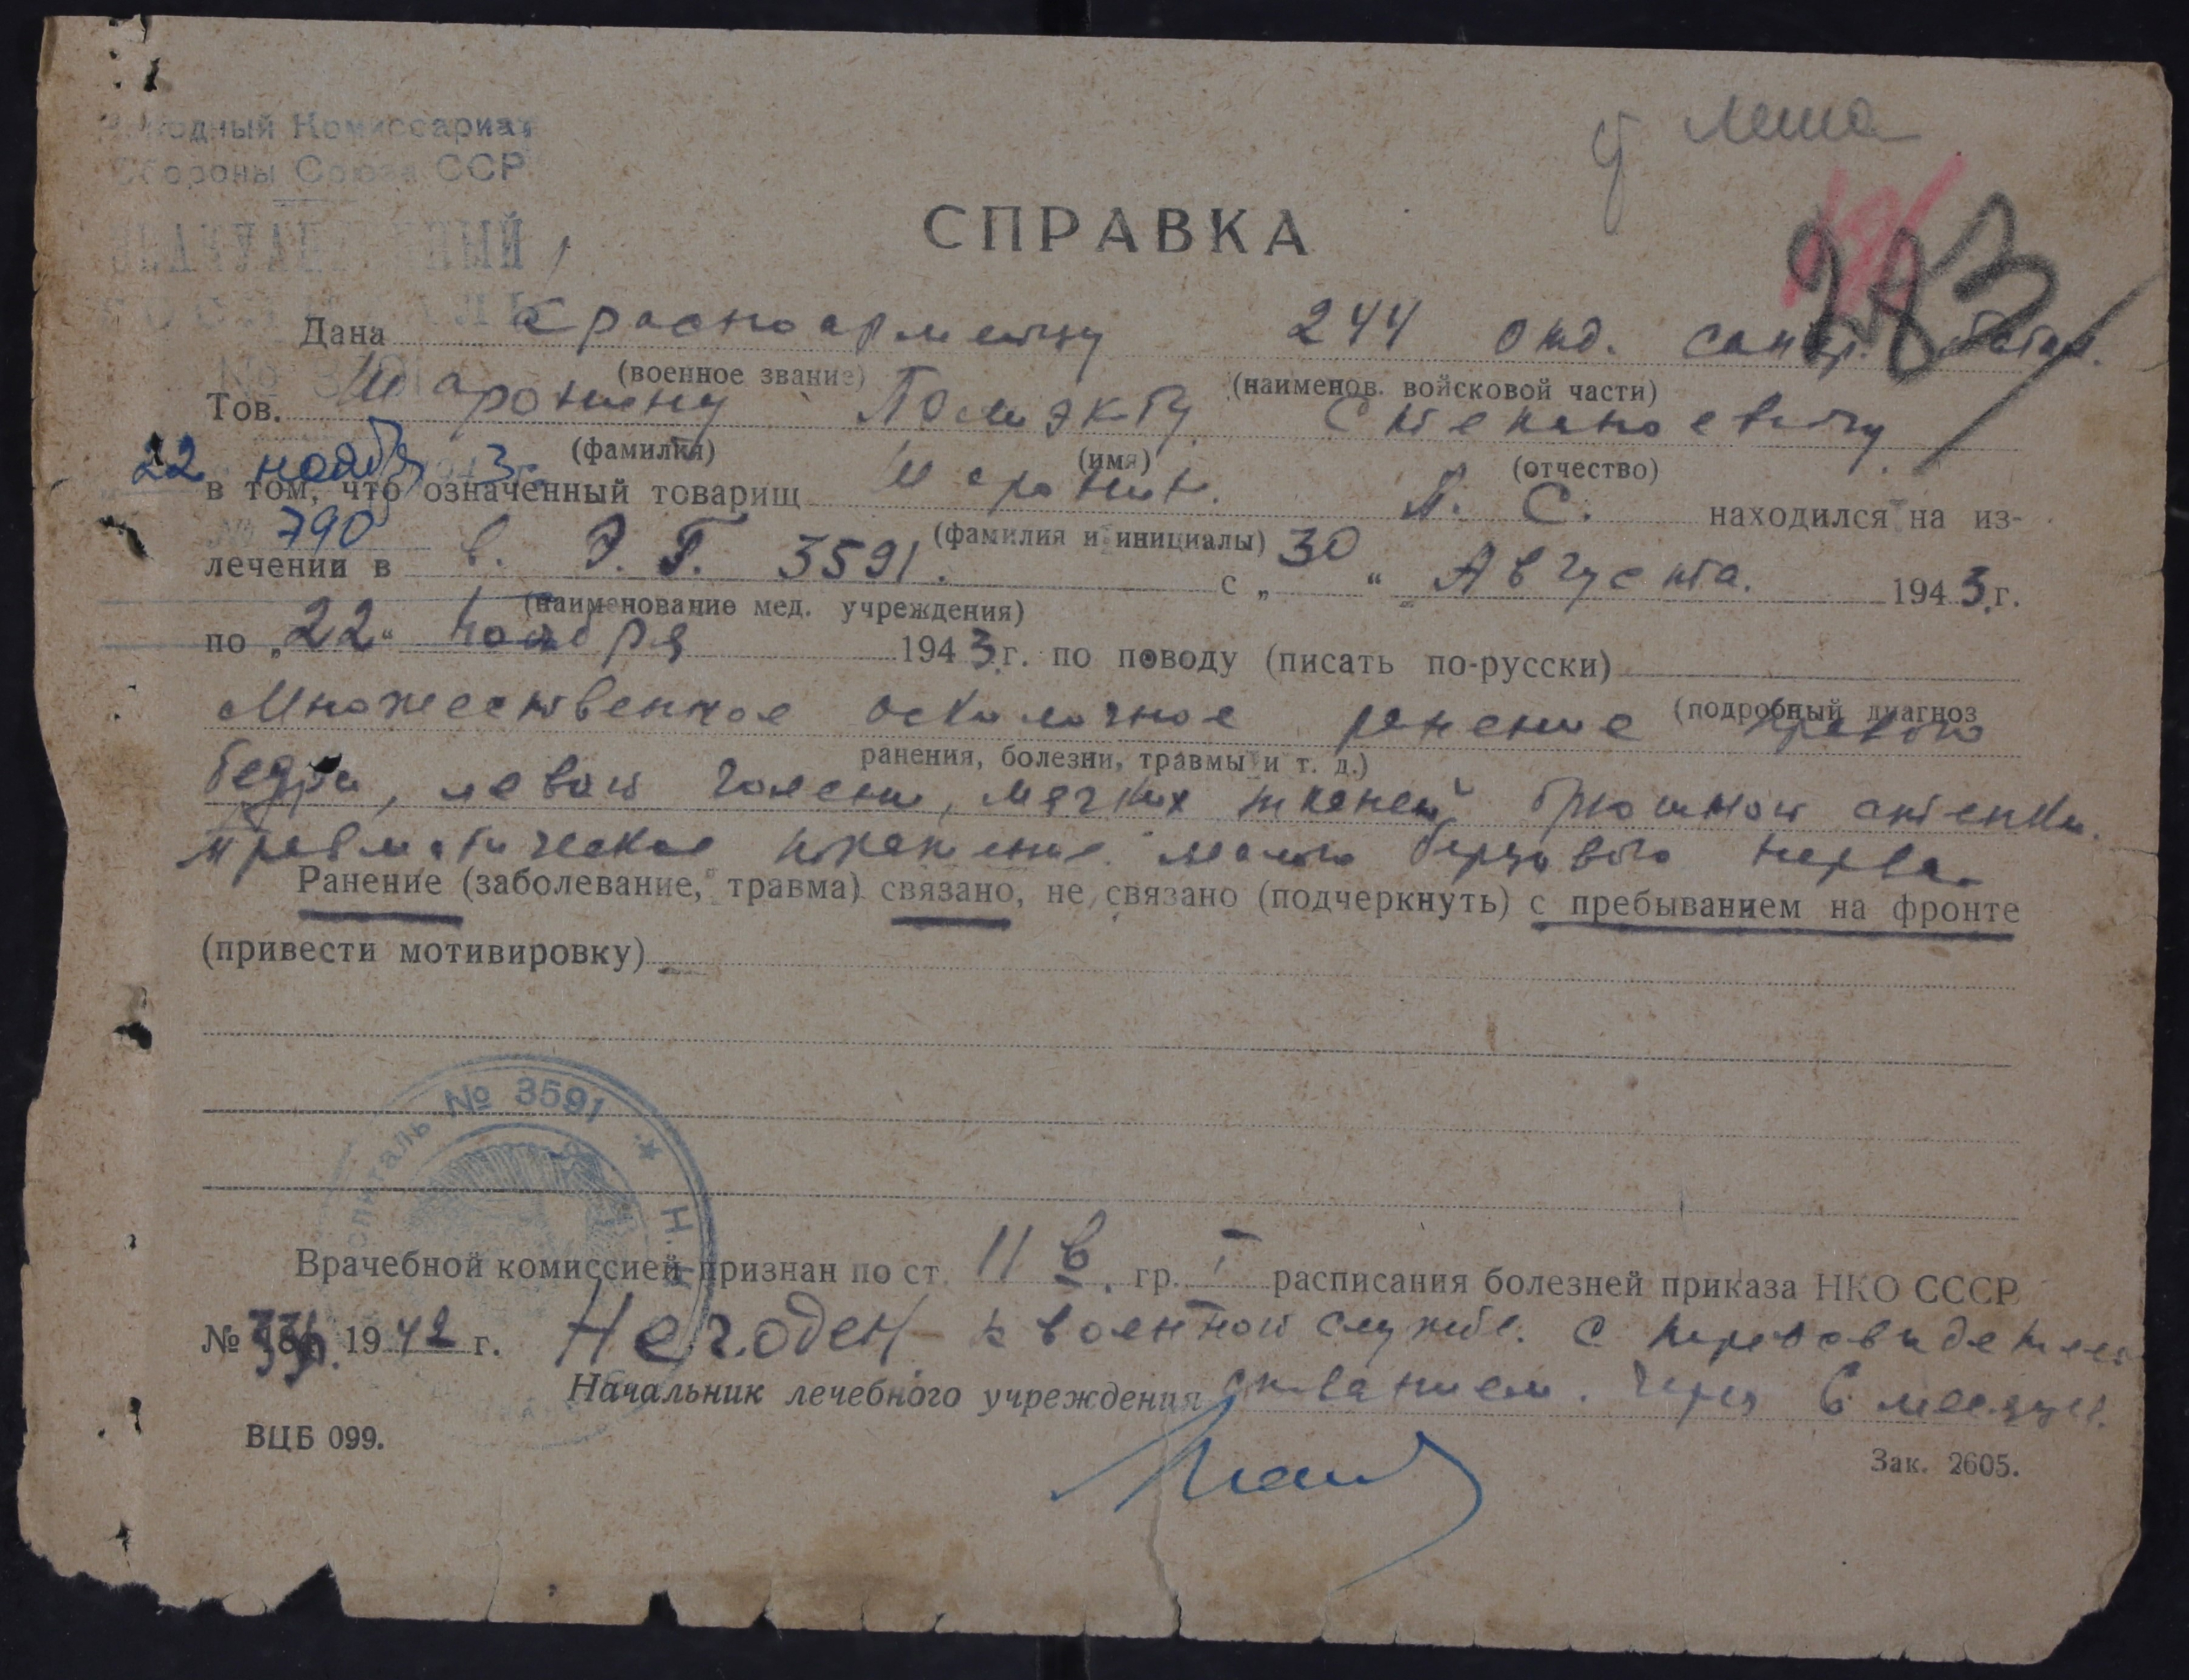 Народный Комиссариат
Обороны Союза ССР
ЭВАКУАЦИОННЫЙ
ГОСПИТАЛЬ
22 ноября 3
790
283
СПРАВКА
Дана красноармейцу 244 отд. сапер. батал.
(военное звание) (наименов. войсковой части)
Тов. Шаронину Степановичу
(фамилия) (имя) (отчество)
в том, что означенный товарищ Шаронин П. С. находился на из-
(фамилия и инициалы)
лечении в в. Э. Г. 3591. с „30“ Августа 1943 г.
(наименование мед. учреждения)
по „22“ ноября 1943 г. по поводу (писать по-русски)
Множественное осколочное ранение правого
(подробный диагноз
бедра, левой голени, мягких тканей брюшной стенки.
ранения, болезни, травмы и т. д.)
травматическое малого берцового нерва.
Ранение (заболевание, травма) связано, не связано (подчеркнуть) с пребыванием на фронте
(привести мотивировку)
госпиталь № 3591 * Н.К.
Врачебной комиссией признан по ст. 11 в. гр. I расписания болезней приказа НКО СССР
№ 336 1942 г. Негоден к военной службе. с переосвидетель
ствованием. через 6 месяцев.
Начальник лечебного учреждения
ВЦБ 099.
Зак. 2605.